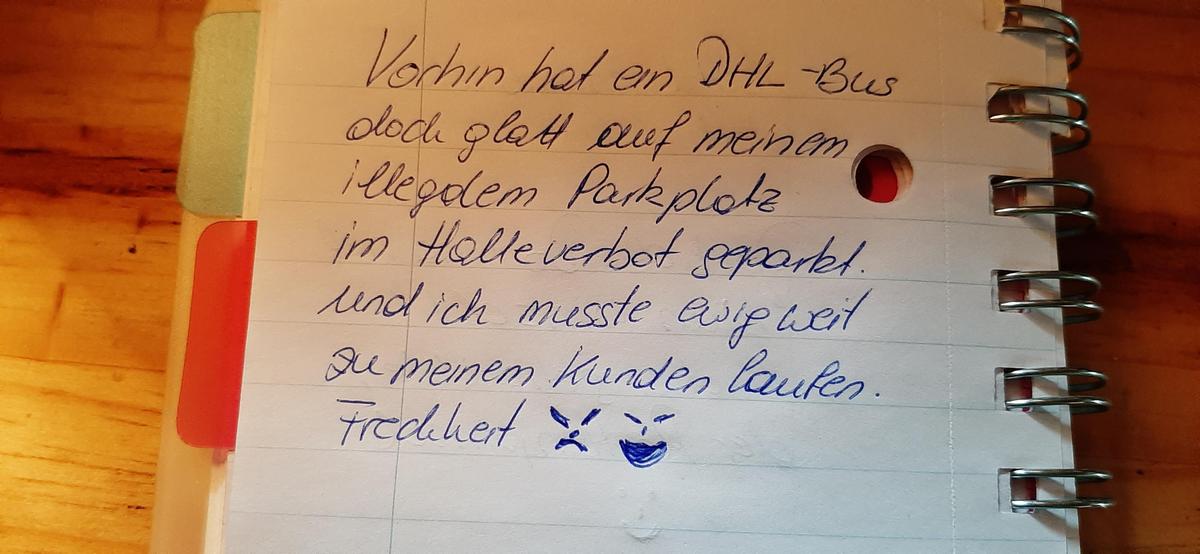 Vorhin hat ein DHL-Bus
doch glatt auf meinem
illegalem Parkplatz
im Halteverbot geparkt.
und ich musste ewig weit
zu meinem Kunden laufen.
Frechheit